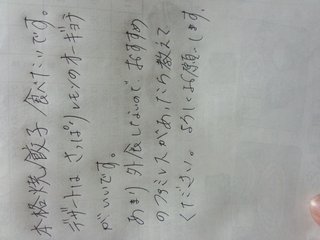 本格焼餃子食べたいです。
デザートはさっぱりレモンのオーギョチ
がいいです。
あまり外食しないので、おすすめ
のファミレスがあったら教えて
ください。よろしくお願いします。